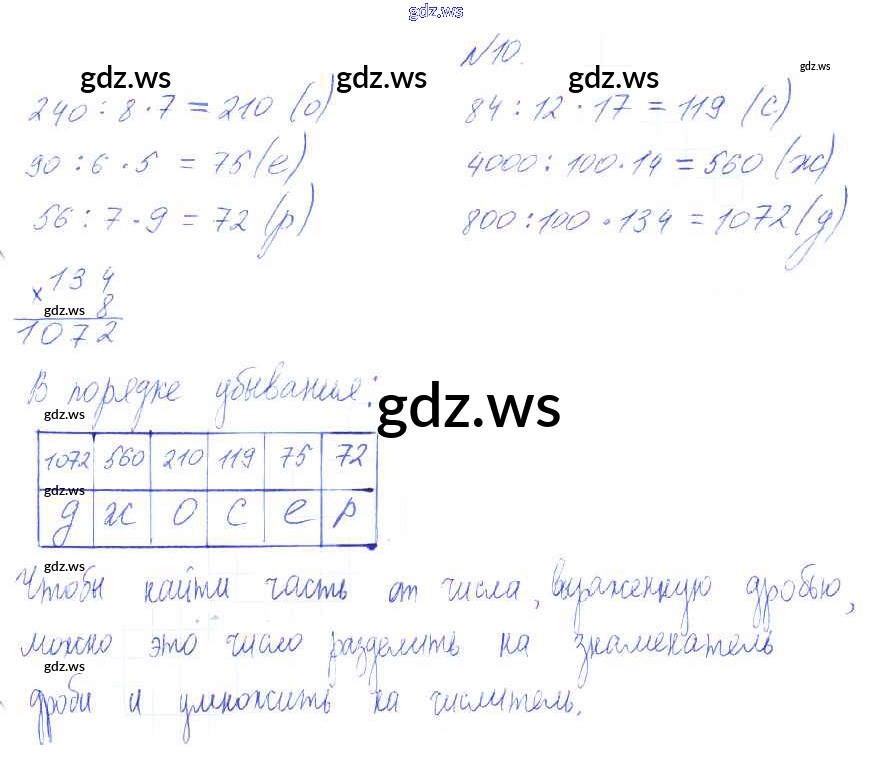 gdz.ws
№10.
gdz.ws gdz.ws gdz.ws gdz.ws
240 : 8 · 7 = 210 (о) 84 : 12 · 17 = 119 (с)
90 : 6 · 5 = 75 (е) 4000 : 100 · 14 = 560 (ж)
56 : 7 · 9 = 72 (р) 800 : 100 · 134 = 1072 (д)
× 134
8
gdz.ws
1072
В порядке убывания:
gdz.ws
gdz.ws
1072 560 210 119 75 72
gdz.ws
д ж о с е р
gdz.ws
Чтобы найти часть от числа, выраженную дробью,
можно это число разделить на знаменатель
gdz.ws
дроби и умножить на числитель.